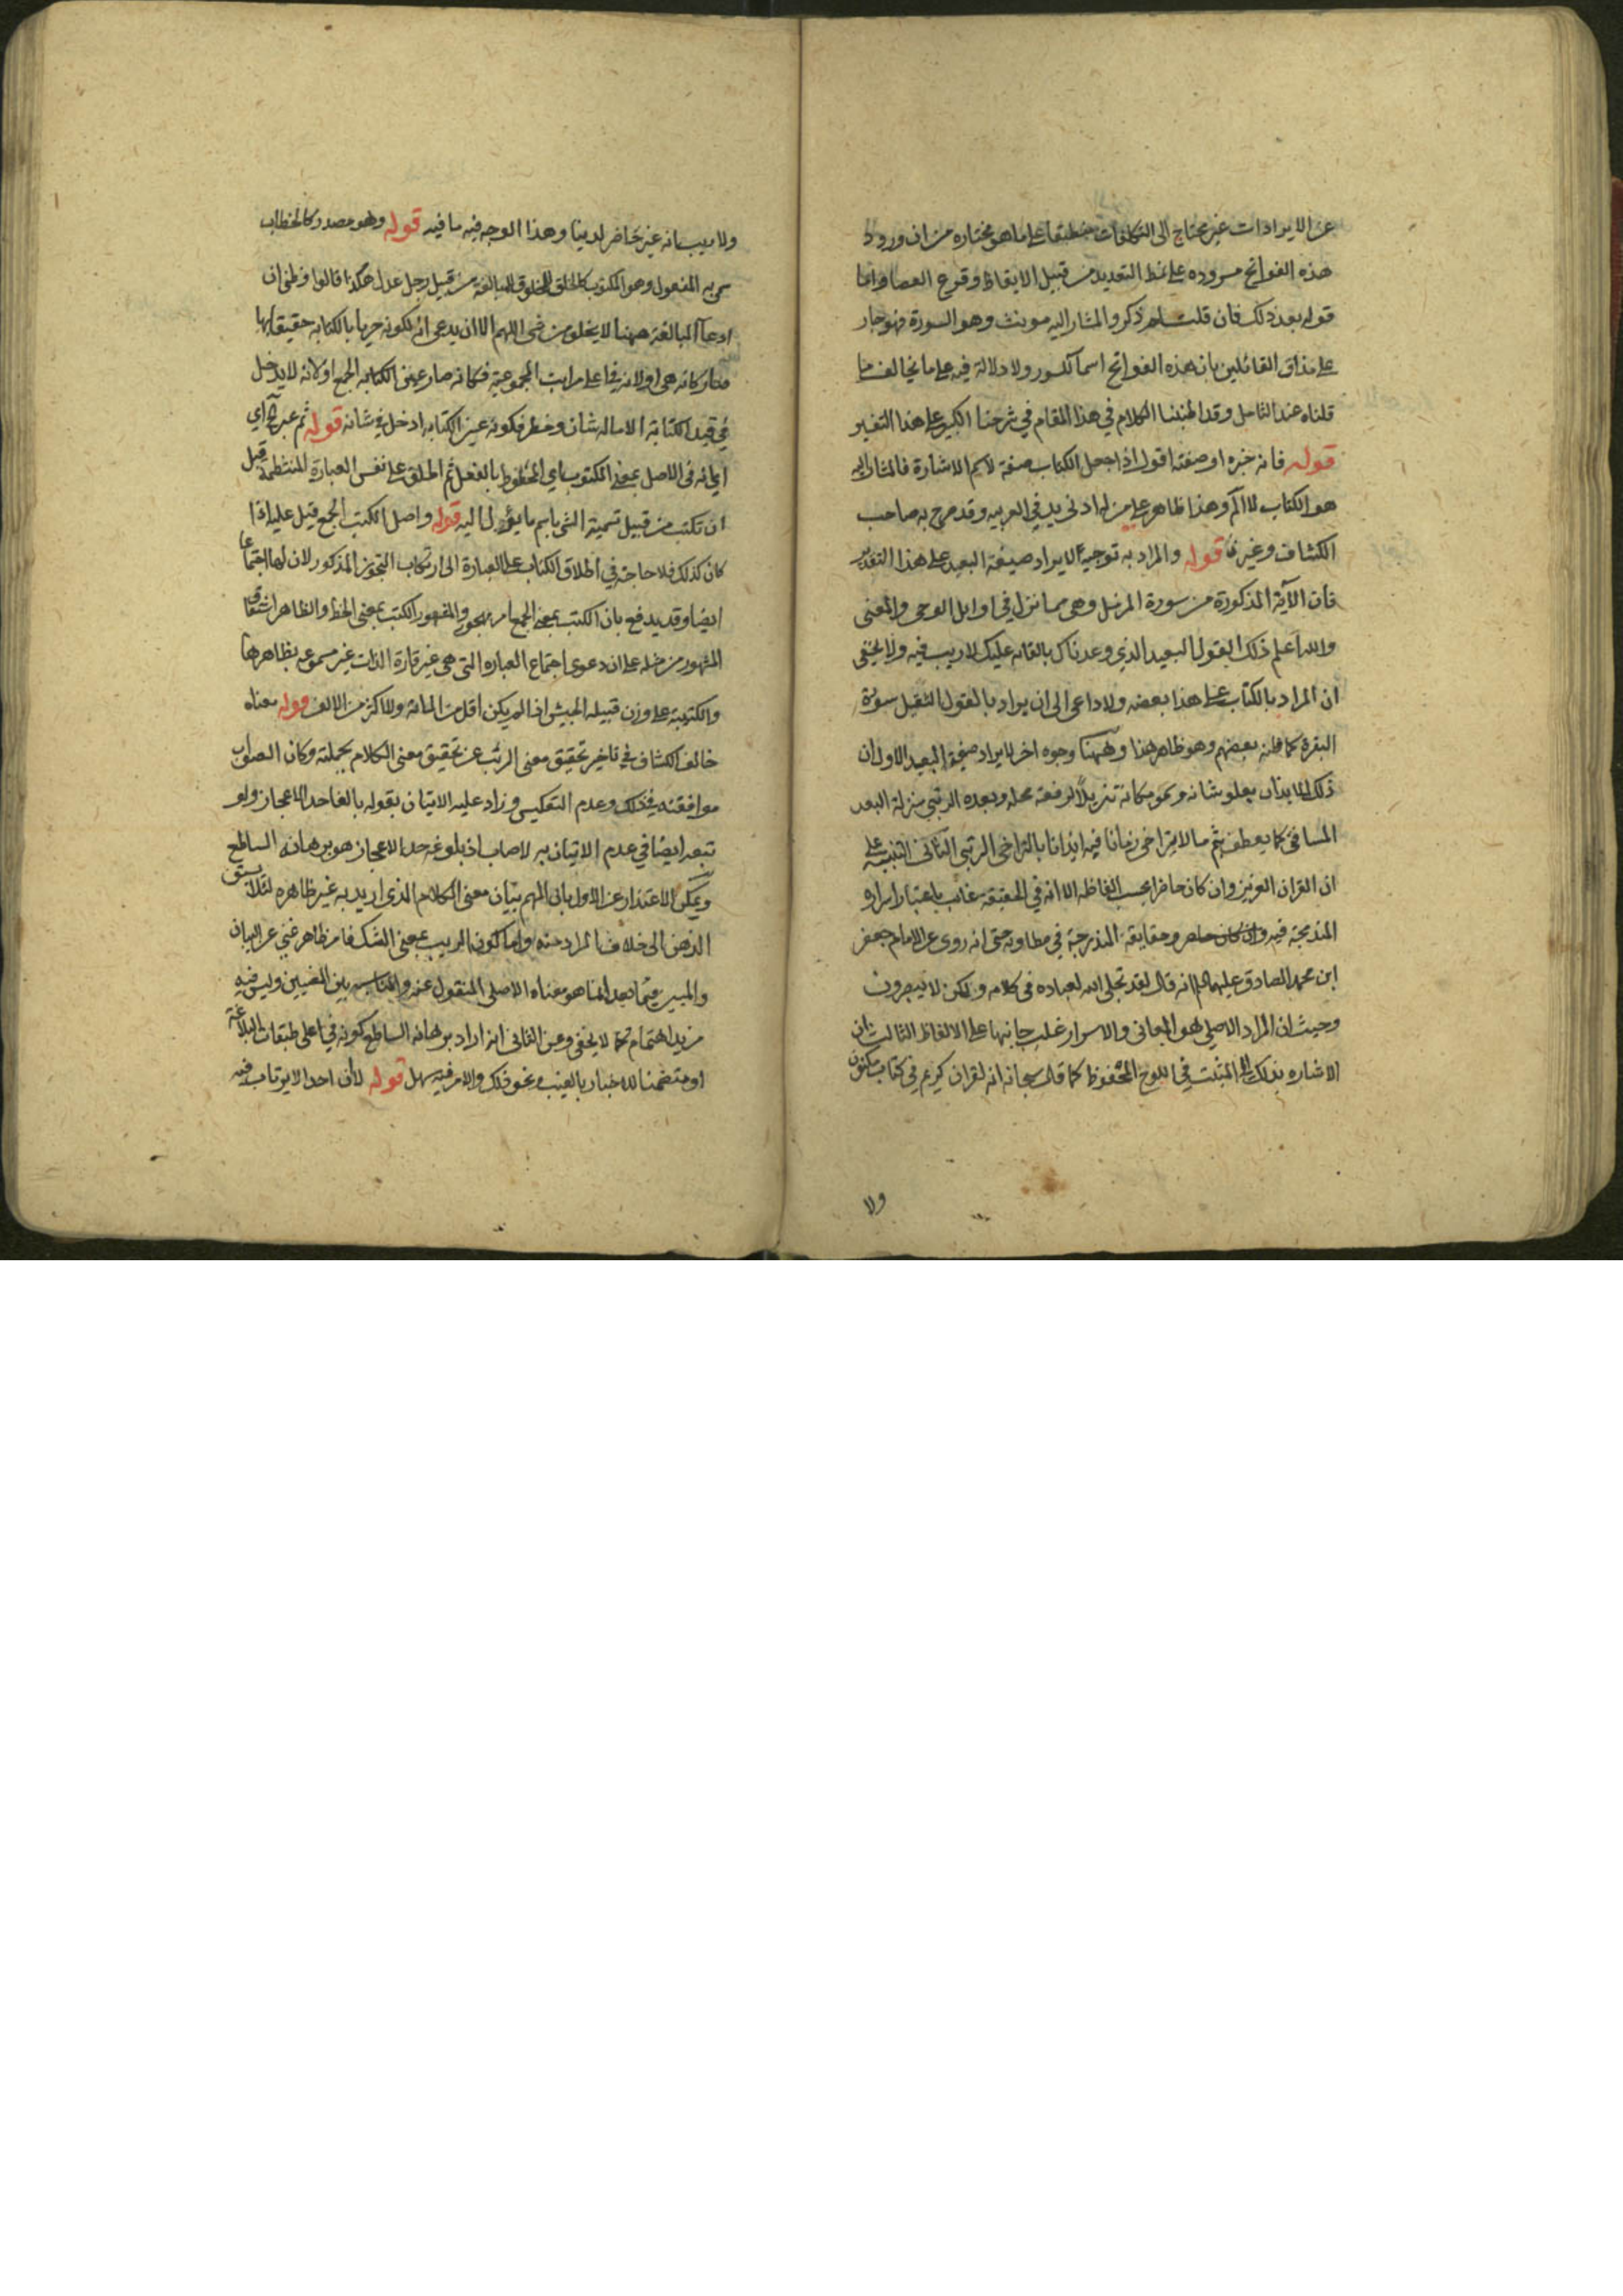 عن الايرادات غير محتاج الى التكلفات منطبقا على ما هو مختاره من ان ورود
هذه الفواتح مسروده على نمط التعديد من قبيل الايقاظ وقرع العصا واما
قوله بعد ذلك فان قلت لم ذكر والمشار اليه مونث وهو السورة فهو جار
على مذاق القائلين بان هذه الفواتح اسما للسور ولا دلالة فيه على ما يخالف ما
قلناه عند التامل وقد اطنبنا الكلام في هذا المقام في شرحنا الكبير على هذا التفسير
قوله فانه خبره او صفته اقول اذا جعل الكتاب صفة لاسم الاشارة فالمشار اليه
هو الكتاب لا الم وهذا ظاهر على من له ادنى يد في العربيه وقد صرح به صاحب
الكشاف وغيره قوله والمراد به توجيه لايراد صيغة البعيد على هذا التقدير
فان الآية المذكورة من سورة المزمل وهي مما نزل في اوايل الوحي والمعنى
والله اعلم ذلك القول البعيد الذي وعدناك بالقائه عليك لاريب فيه ولا يخفى
ان المراد بالكتاب على هذا بعضه ولا داعي الى ان يراد بالقول الثقيل سورة
البقرة كما ظنه بعضهم وهو ظاهر هذا وههنا وجوه اخر لايراد صيغة البعيد الاول ان
ذلك للايذان بعلو شانه وسمو مكانه تنزيلا لرفعة محله وبعده الرتبي منزلة البعد
المسافي كما يعطف بثم ما لا يتراخى زمانا فيه ايذانا بالتراخي الرتبي الثاني التنبيه على
ان القران العزيز وان كان حاضرا بحسب الفاظه الا انه في الحقيقة غائب باعتبار اسراره
المندمجة فيه وان كان حاضر وحقايقه المندرجة في مطاويه حتى انه روى عن الامام جعفر
ابن محمد الصادق عليهما السلام انه قال لقد تجلى الله لعباده في كلامه ولكن لا يبصرون
وحيث ان المراد الاصلي هو المعاني والاسرار غلب جانبها على الالفاظ الثالث ان
الاشاره بذلك الى المثبت في اللوح المحفوظ كما قال سبحانه انه لقران كريم في كتاب مكنون
ولا
ولا ريب انه غير حاضر لدينا وهذا الوجه فيه ما فيه قوله وهو مصدر كالخطاب
سمي به المفعول وهو المكتوب كالخلق للمخلوق للمبالغة من قبيل رجل عدل هكذا قالوا وظني ان
ادعآ المبالغة ههنا لا يخلو من شى اللهم الا ان يدعى انه لكونه حريا بالكتابه حقيقا بها
صار كانه هي او لانه في اعلى مراتب المجموعية فكانه صار عين الكتابه الجمع او لانه لا يدخل
في قيد الكتابة الا ماله شان وخطر فكونه عين الكتابه ادخل في شانه قوله ثم عبر به اي
اي انه في الاصل بمعنى المكتوب اي المخطوط بالفعل ثم اطلق على نفس العبارة المنتظمة قبل
ان تكتب من قبيل تسمية الشي باسم ما يؤول اليه قوله واصل الكتب الجمع قيل عليه اذا
كان كذلك فلا حاجة في اطلاق الكتاب على العبارة الى ارتكاب التجوز المذكور لان لها اجتماعا
ايضا وقد يدفع بان الكتب بمعنى الجمع امر مهجور والمشهور الكتب بمعنى الخط والظاهر اشتقاق
المشهور من مثله على ان دعوى اجتماع العباره التى هي غير قارة الذات غير مسموعه بظاهرها
والكتيبة على وزن قبيلة الجيش اذا لم يكن اقل من المائة ولا اكثر من الالف قوله معناه
خالف الكشاف في تاخير تحقيق معنى الريب عن تحقيق معنى الكلام بجملته وكان الصواب
موافقته في ذلك وعدم التعكيس وزاد عليه الاتيان بقوله بالغا حد الاعجاز ولو
تبعه ايضا في عدم الاتيان به لاصاب اذ بلوغه حد الاعجاز هو برهانه الساطع
ويمكن الاعتذار عن الاول بان المهم بيان معنى الكلام الذي اريد به غير ظاهره لئلا يسبق
الذهن الى خلاف المراد منه واما كون الريب بمعنى الشك فامر ظاهر غني عن البيان
والمبين فيما بعد انما هو معناه الاصلي المنقول عنه والمناسبه بين المعنيين وليس فيه
مزيد اهتمام كما لا يخفى وعن الثاني انه اراد ببرهانه الساطع كونه في اعلى طبقات البلاغة
او متضمنا للاخبار بالغيب ونحو ذلك والامر فيه سهل قوله لا ان احدا لا يرتاب فيه